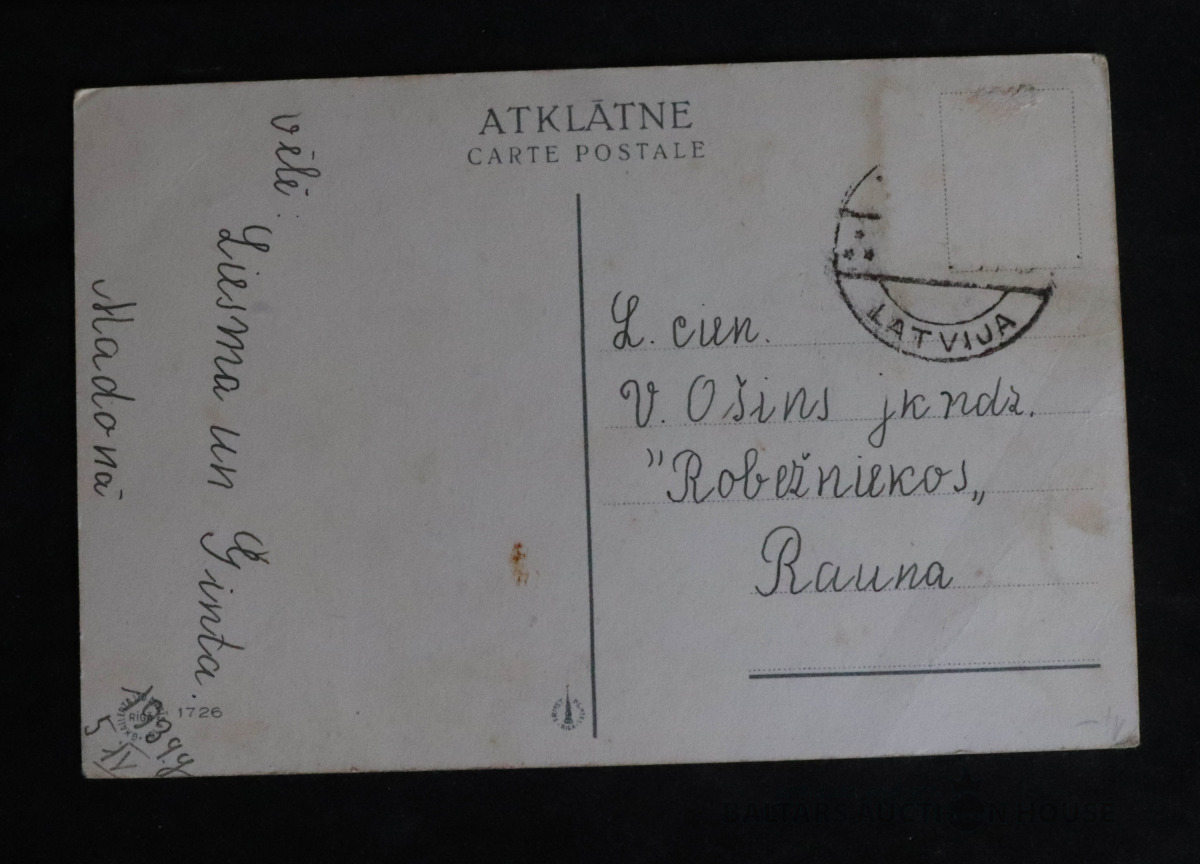 ATKLĀTNE
CARTE POSTALE
vēlē:
Liesma un Ginta.
Madonā
1939.g
5 IV
RĪGĀ
1726
LATVIJA
L. cien.
V. Ošins jkndz.
"Robežniekos„
Rauna
BALTARS AUCTION HOUSE